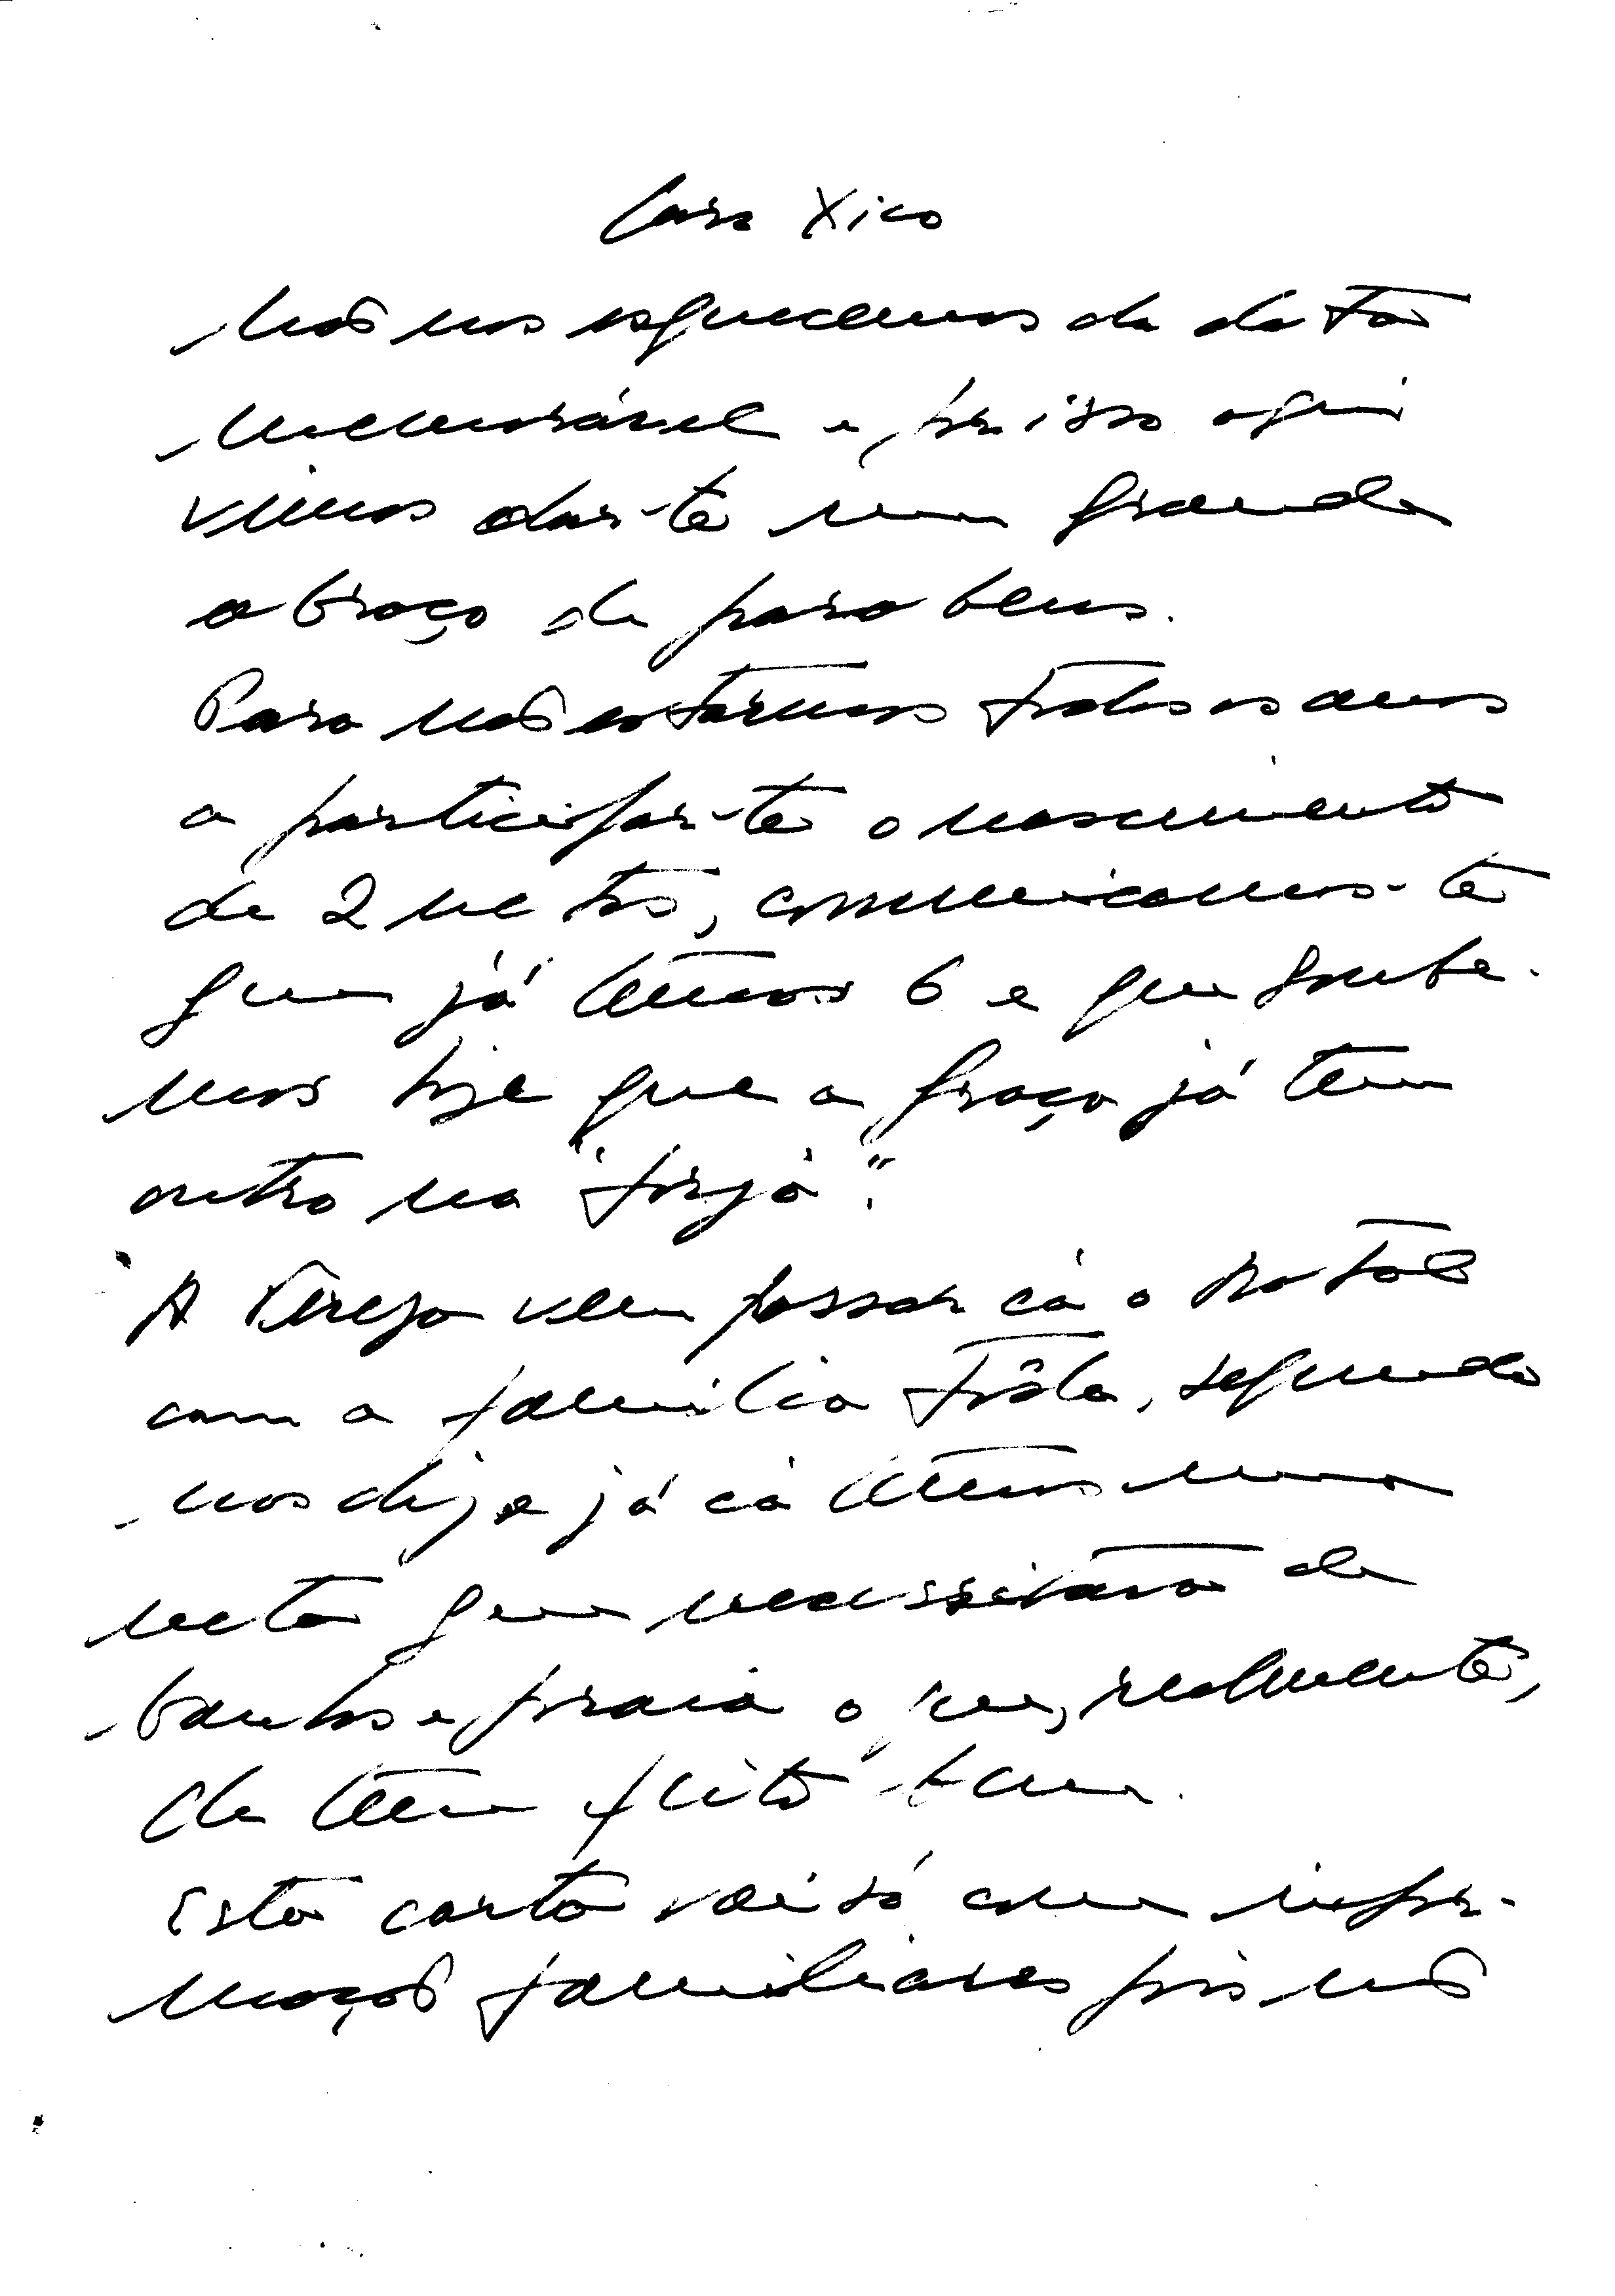 Caro Xico
Não nos esquecemos da data
memorável e por isso aqui
vimos dar-te um grande
abraço de parabens.
Para não estarmos todos os anos
a participar-te o nascimento
de 2 netos, comunicamos-te
que já temos 6 e que soube-
mos hoje que a Graça já tem
outro na "forja".
A Tereza vem passar cá o Natal
com a familia toda, segundo
nos diz e já cá temos uma
neta que necessitava de
banhos e praia o que, realmente,
lhe tem feito bem.
Esta carta vai só com infor-
mações familiares pois não